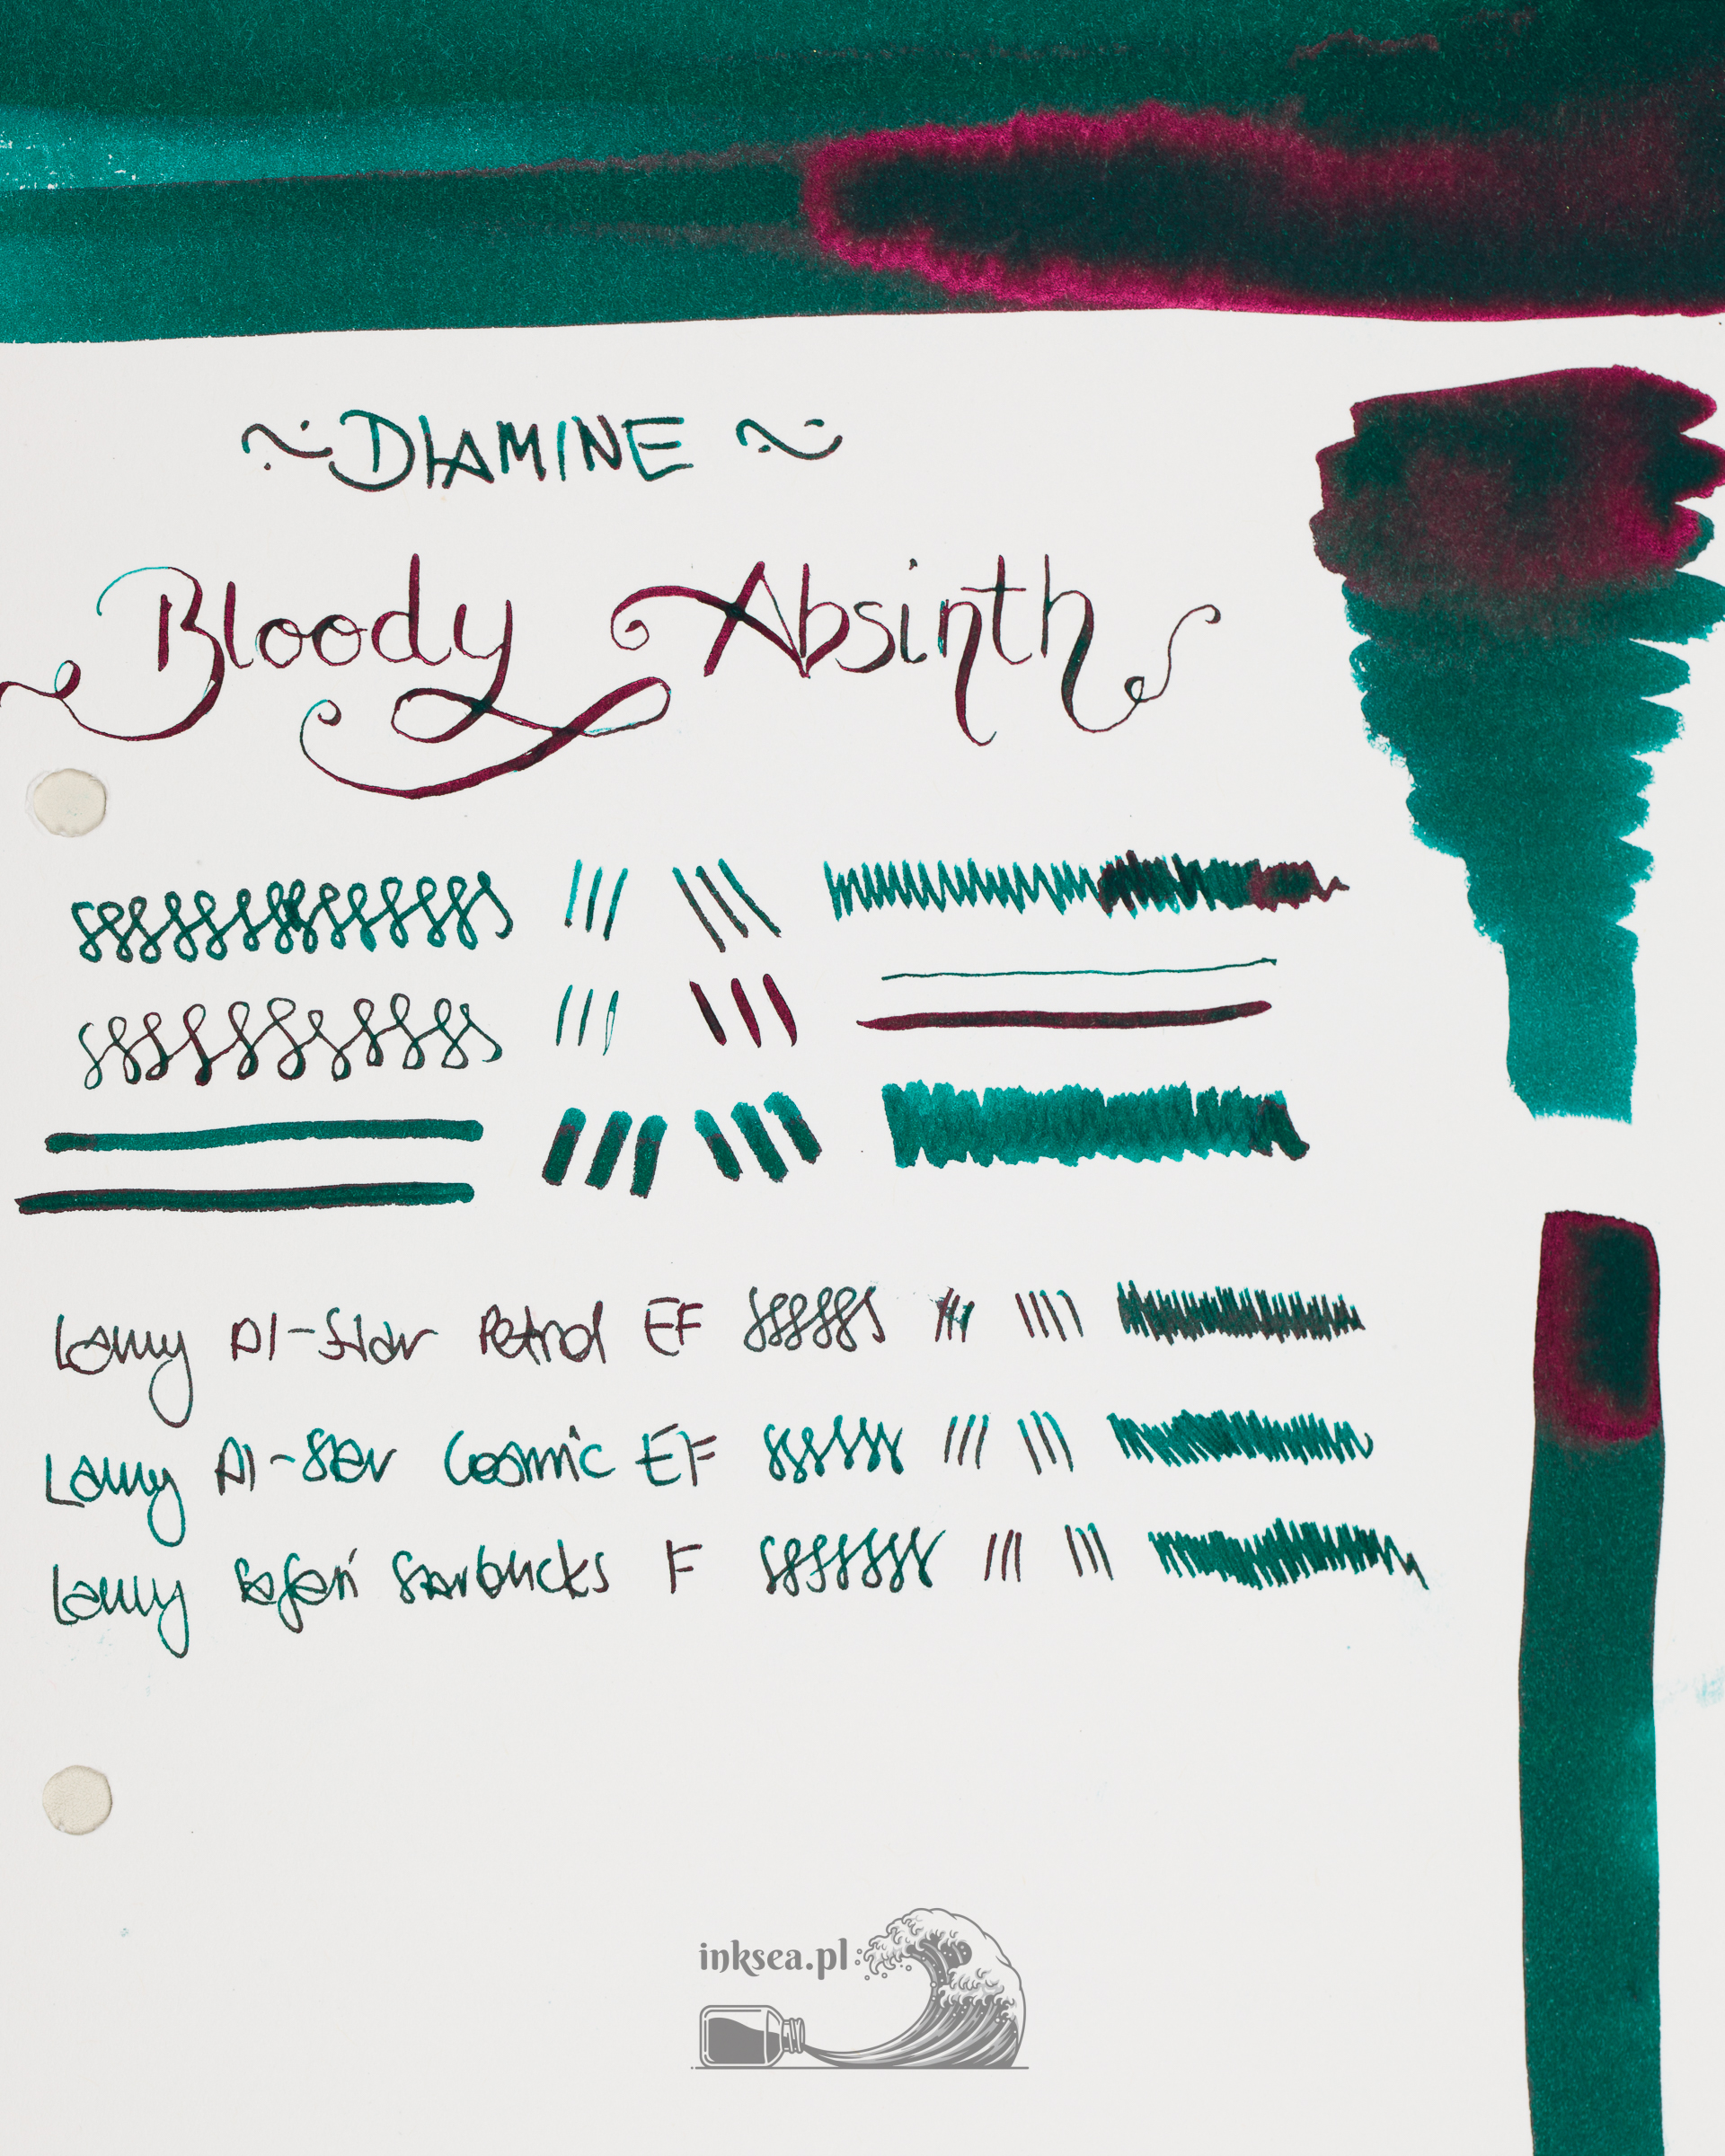 DIAMINE
Bloody Absinth
Lamy Al-Star Petrol EF
Lamy Al-Star Cosmic EF
Lamy Safari Starbucks F
inksea.pl